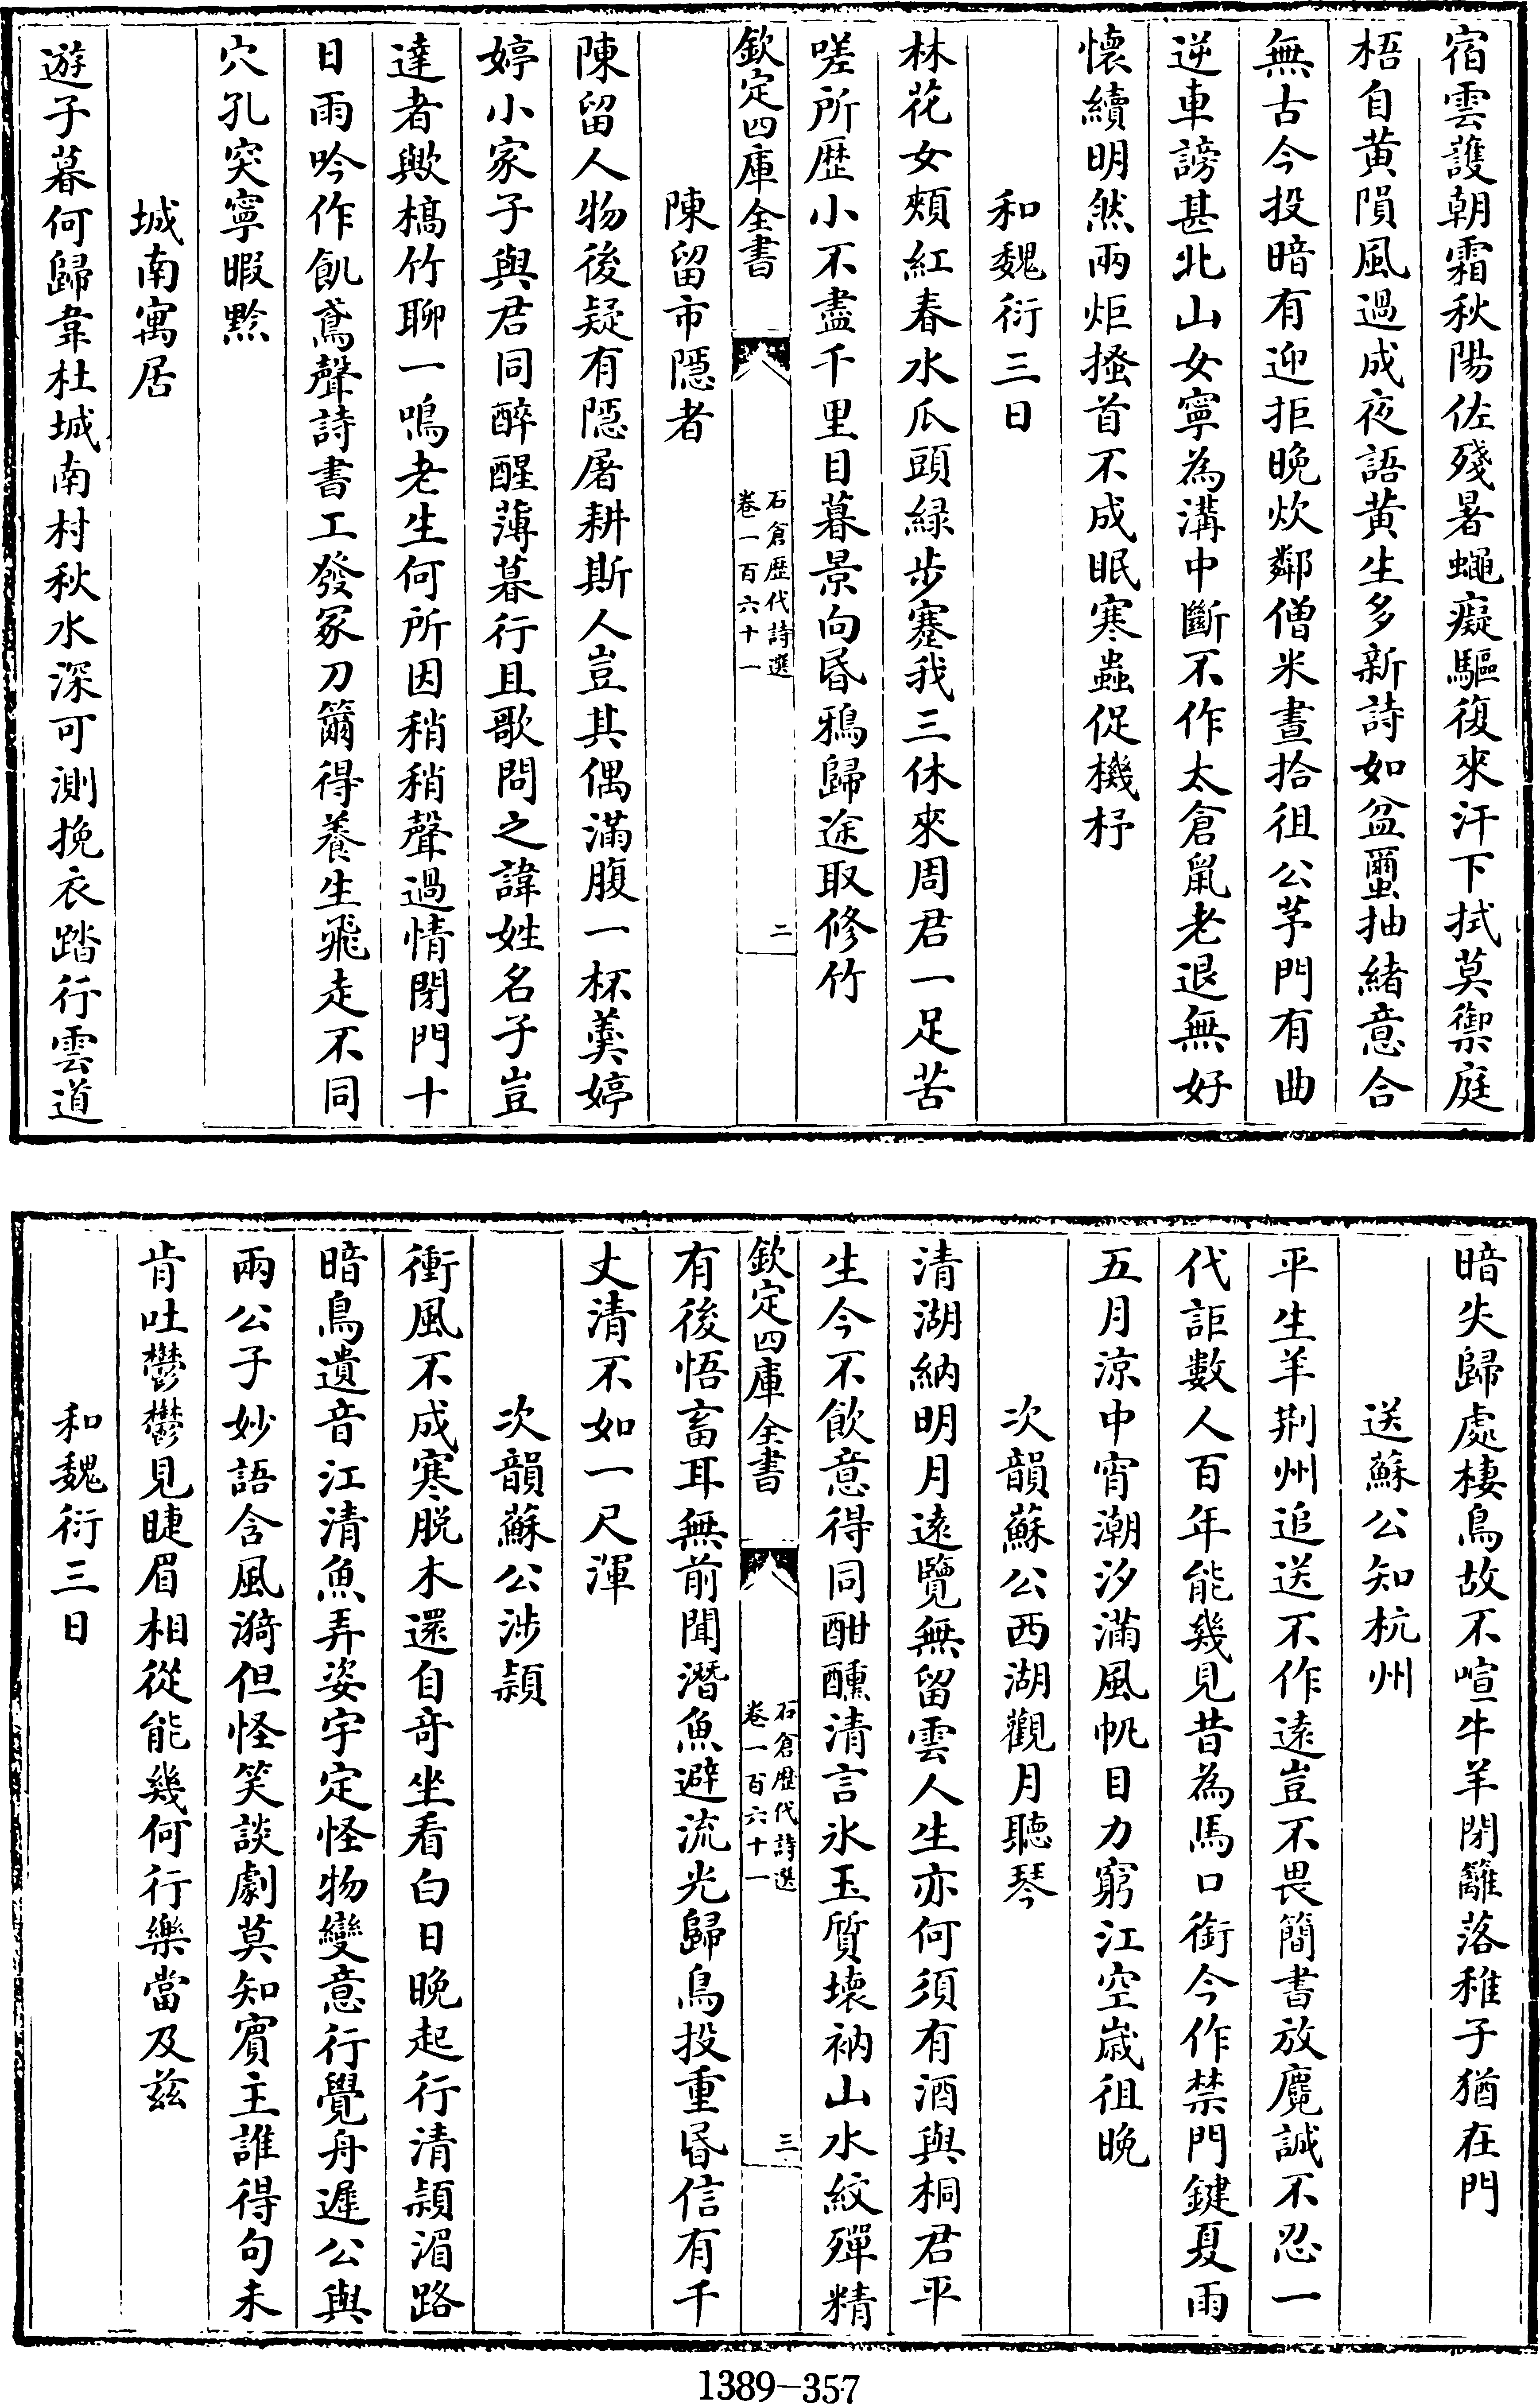 宿雲護朝霜秋陽佐殘暑蠅癡驅復來汗下拭莫禦庭
梧自黄隕風過成夜語黄生多新詩如盆蠒抽緒意合
無古今投暗有迎拒晚炊鄰僧米晝拾徂公芧門有曲
逆車謗甚北山女寧為溝中斷不作太倉鼠老退無好
懷續明然兩炬搔首不成眠寒蟲促機杼
和魏衍三日
林花女頰紅春水瓜頭緑步蹇我三休來周君一足苦
嗟所歴小不盡千里目暮景向昏鴉歸途取修竹
欽定四庫全書
石倉歴代詩選
卷一百六十一
二
陳留市隱者
陳留人物後疑有隱屠耕斯人豈其偶滿腹一杯羮婷
婷小家子與君同醉醒薄暮行且歌問之諱姓名子豈
達者歟槁竹聊一鳴老生何所因稍稍聲過情閉門十
日雨吟作飢鳶聲詩書工發冢刀籋得養生飛走不同
穴孔突寧暇黔
城南寓居
遊子暮何歸韋杜城南村秋水深可測挽衣踏行雲道
暗失歸處棲鳥故不喧牛羊閉籬落稚子猶在門
送蘇公知杭州
平生羊荆州追送不作逺豈不畏簡書放麑誠不忍一
代詎數人百年能幾見昔為馬口銜今作禁門鍵夏雨
五月涼中宵潮汐滿風帆目力窮江空歳徂晚
次韻蘇公西湖觀月聽琴
清湖納明月逺覽無留雲人生亦何須有酒與桐君平
生今不飲意得同酣醺清言氷玉質壞衲山水紋殫精
欽定四庫全書
石倉歴代詩選
卷一百六十一
三
有後悟畜耳無前聞潛魚避流光歸鳥投重昏信有千
丈清不如一尺渾
次韻蘇公涉潁
衝風不成寒脱木還自竒坐看白日晚起行清潁湄路
暗鳥遺音江清魚弄姿宇定怪物變意行覺舟遲公與
兩公子妙語含風漪但怪笑談劇莫知賓主誰得句未
肯吐鬱鬱見睫眉相從能幾何行樂當及兹
和魏衍三日
1389-357